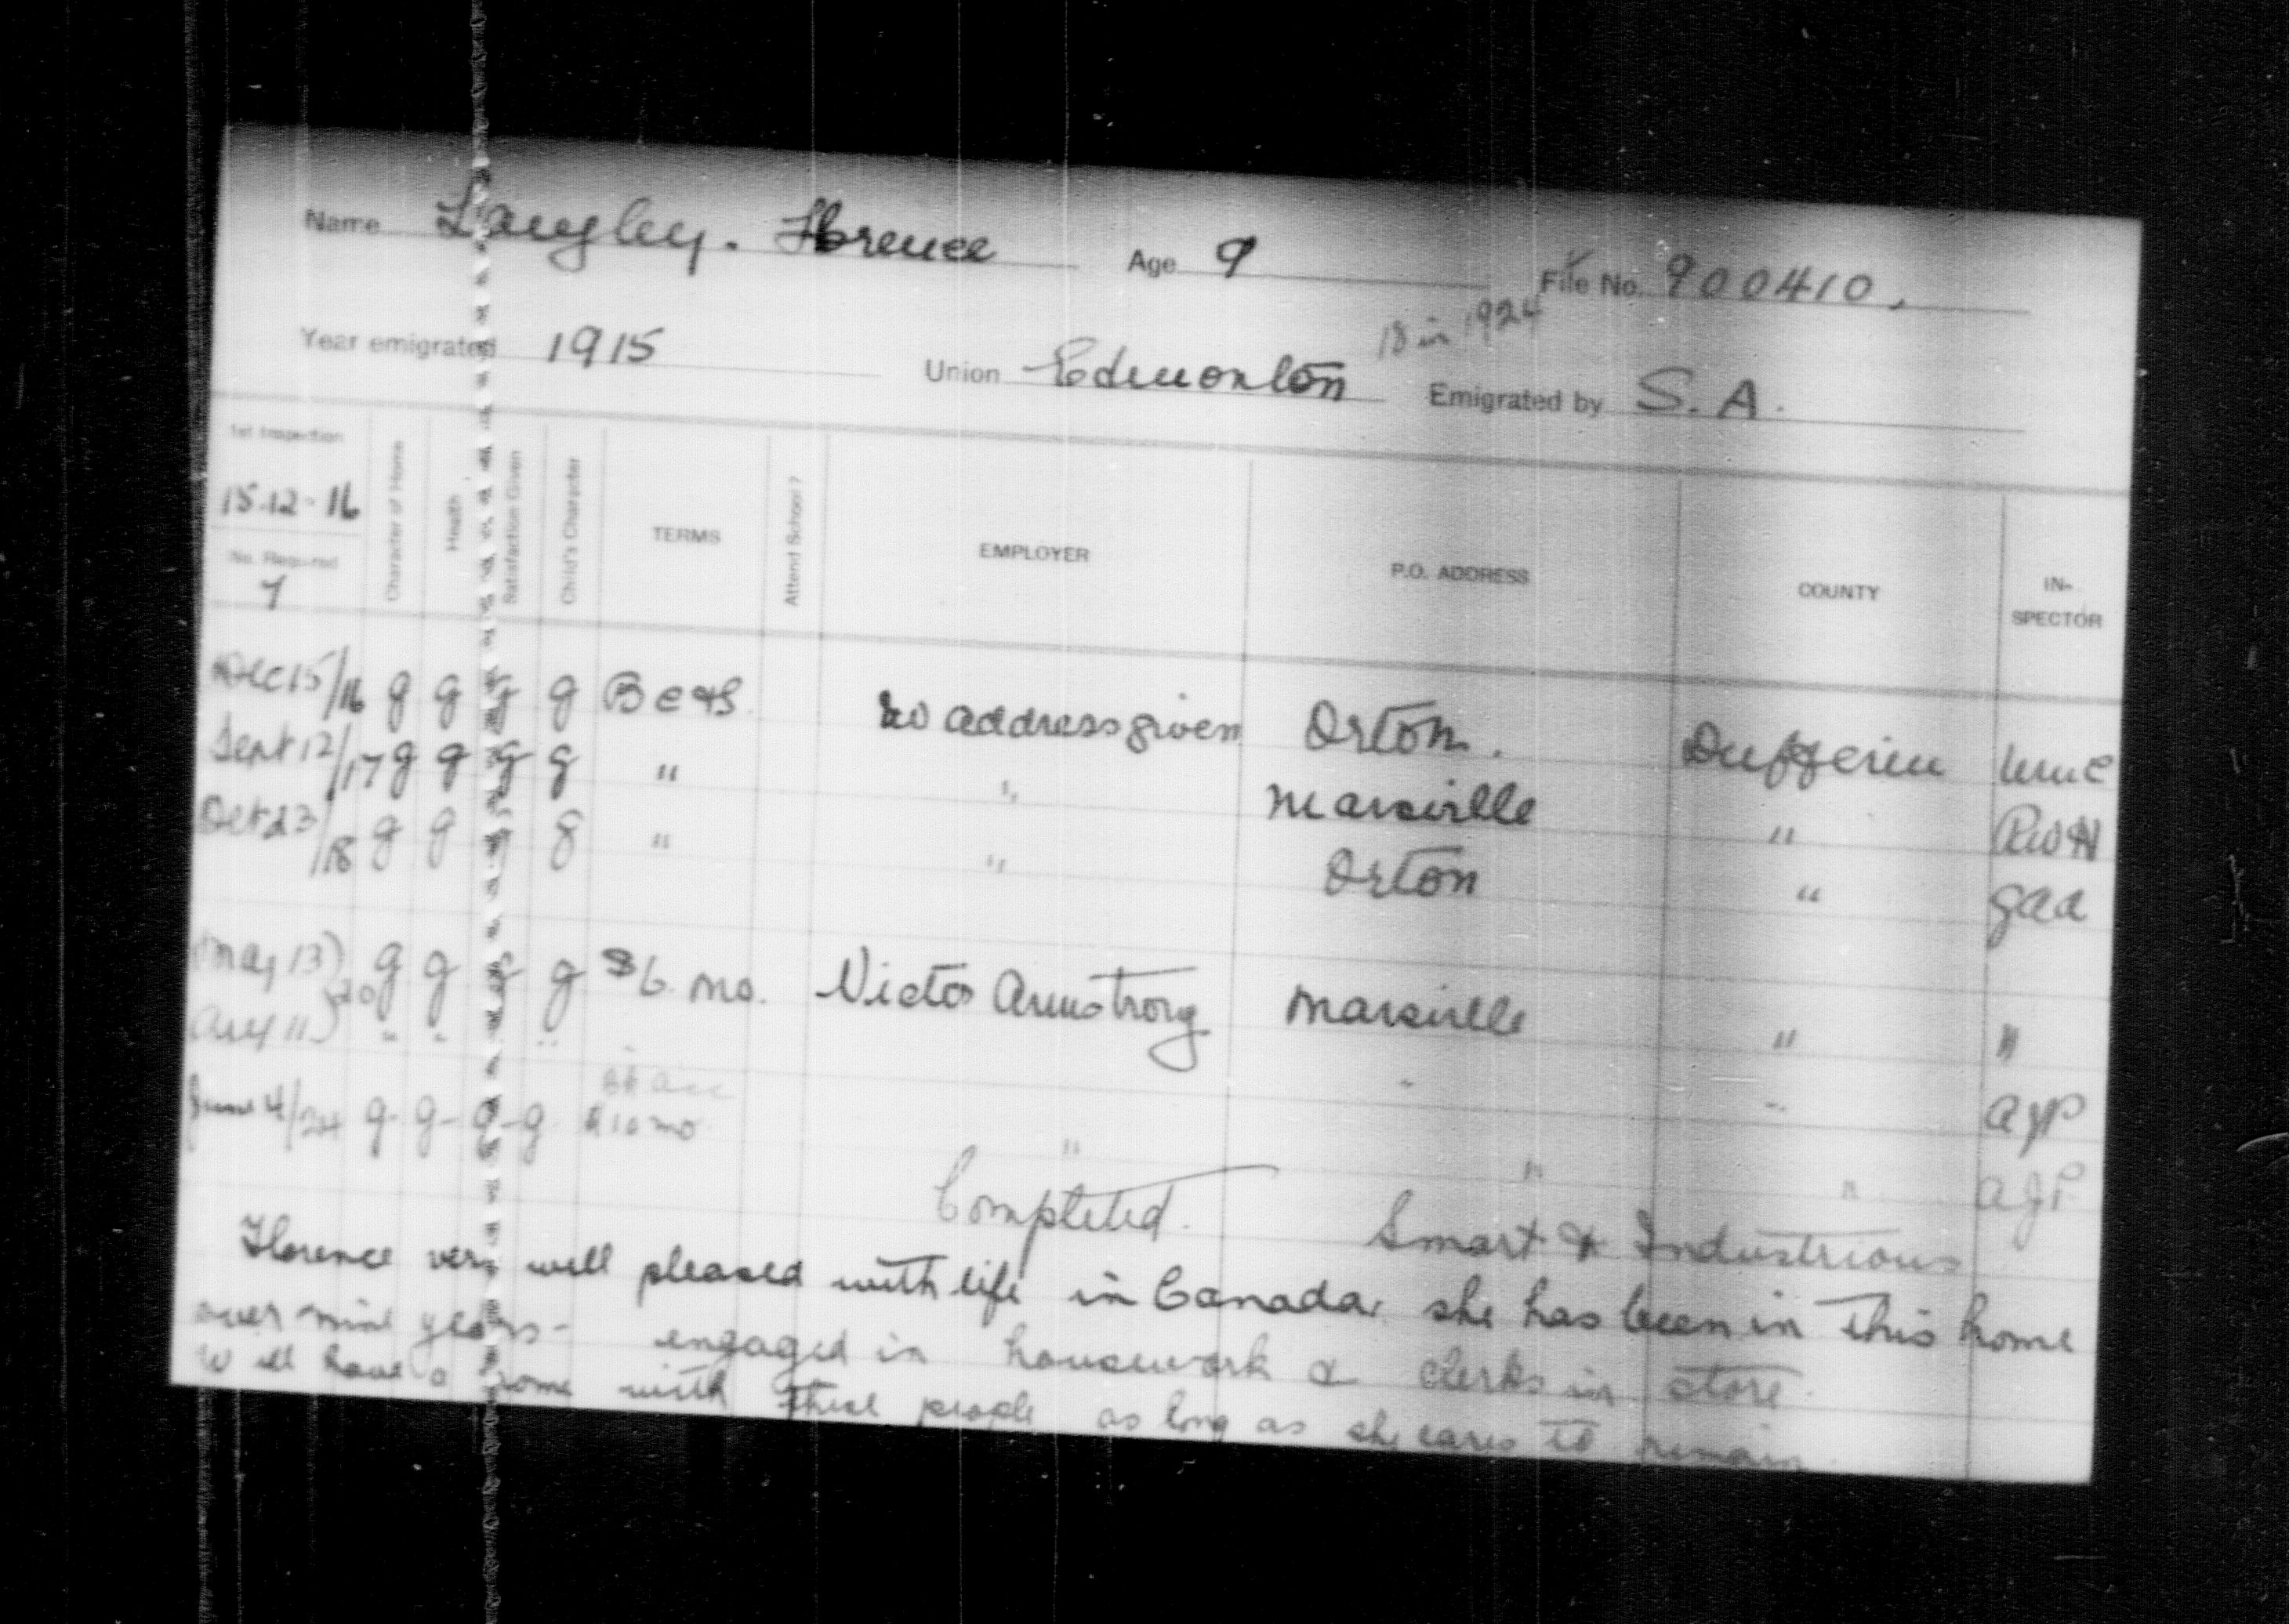 Name Langley. Florence Age 9 File No. 900410.
18 in 1924
Year emigrated 1915 Union Edmonton Emigrated by S. A.
1st Inspection 15.12-16 No. Required 7 Character of Home Health Satisfaction Given Child's Character TERMS Attend School? EMPLOYER P.O. ADDRESS COUNTY IN-SPECTOR
Dec 15/16 g g g g B C & S. no address given Orton. Dufferin
Sept 12/17 g g g g " " Marsville " RWH
Oct 23/18 g g g g " " Orton " gaa
May 13) 20 g g g g $6. mo. Victor Armstrong Marsville " "
Aug 11) " " " " " AJP
June 4/24 g- g- g- g $10 mo " " " AJP
Completed. Smart & Industrious
Florence very well pleased with life in Canada. she has been in this home
over nine years- engaged in housework & clerks in store.
Will have a home with these people as long as she cares to remain